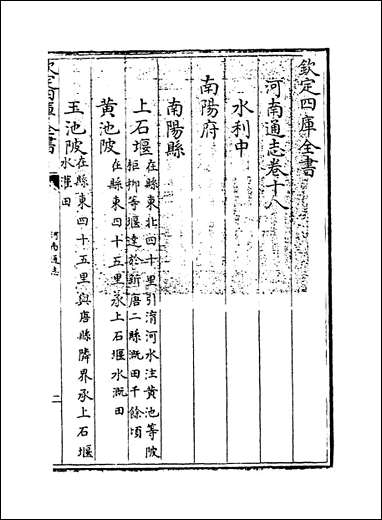 欽定四庫全書
河南通志卷十八
水利中
南陽府
南陽縣
上石堰在縣東北四十里引淯河水注黄池等陂
柜抑等堰達於新唐二縣溉田千餘頃
黄池陂在縣東四十五里承上石堰水溉田
玉池陂在縣東四十五里與唐縣隣界承上石堰
水灌田
河南通志